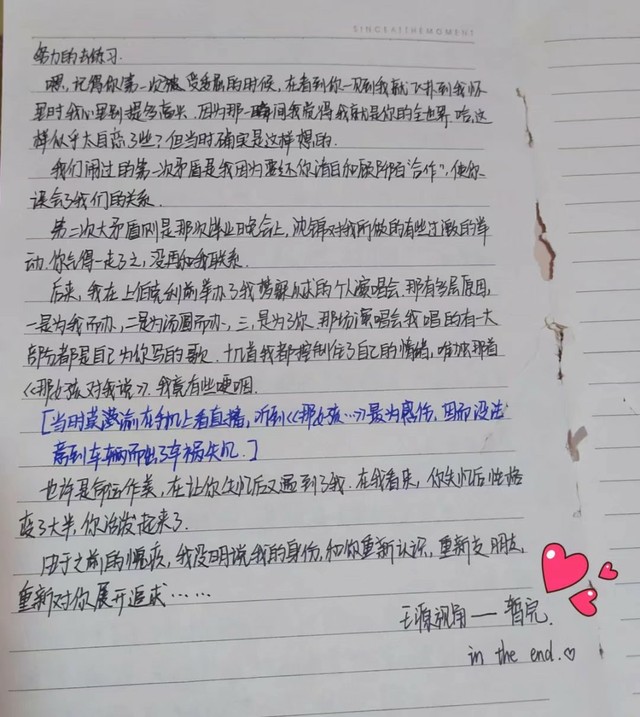 SINCEATTHEMOMENT
努力的去练习.
嗯,记得你第一次被受委屈的时候,在看到你一见到我就飞扑到我怀
里时我心里别提多高兴.因为那一瞬间我觉得我就是你的全世界.哈,这
样似乎太自恋了些?但当时确实是这样想的.
我们闹过的第一次矛盾是我因为要还你清白和顾"合作",使你
误会了我们的关系.
第二次大矛盾则是那次毕业晚会上,沈 对我所做的有些过激的举
动.你气得一走了之,没再和我联系.
后来,我在上伯克利前举办了我梦寐以求的个人演唱会.那有多层原因,
一是为我而办,二是为汤圆而办,三,是为了你.那场演唱会我唱的有一大
部分都是自己为你写的歌.十几首我都控制住了自己的情绪,唯独那首
《那女孩对我说》.我竟有些哽咽.
[当时莫滢渝在手机上看直播,听到《那女孩…》最为感伤,因而没注
意到车辆而出了车祸失忆.]
也许是命运作美,在让你失忆后又遇到了我.在我看来,你失忆后性格
变了大半,你活泼起来了.
由于之前的愧疚,我没明说我的身份,和你重新认识,重新交朋友,
重新对你展开追求……
王源视角——暂完.
in the end.♡